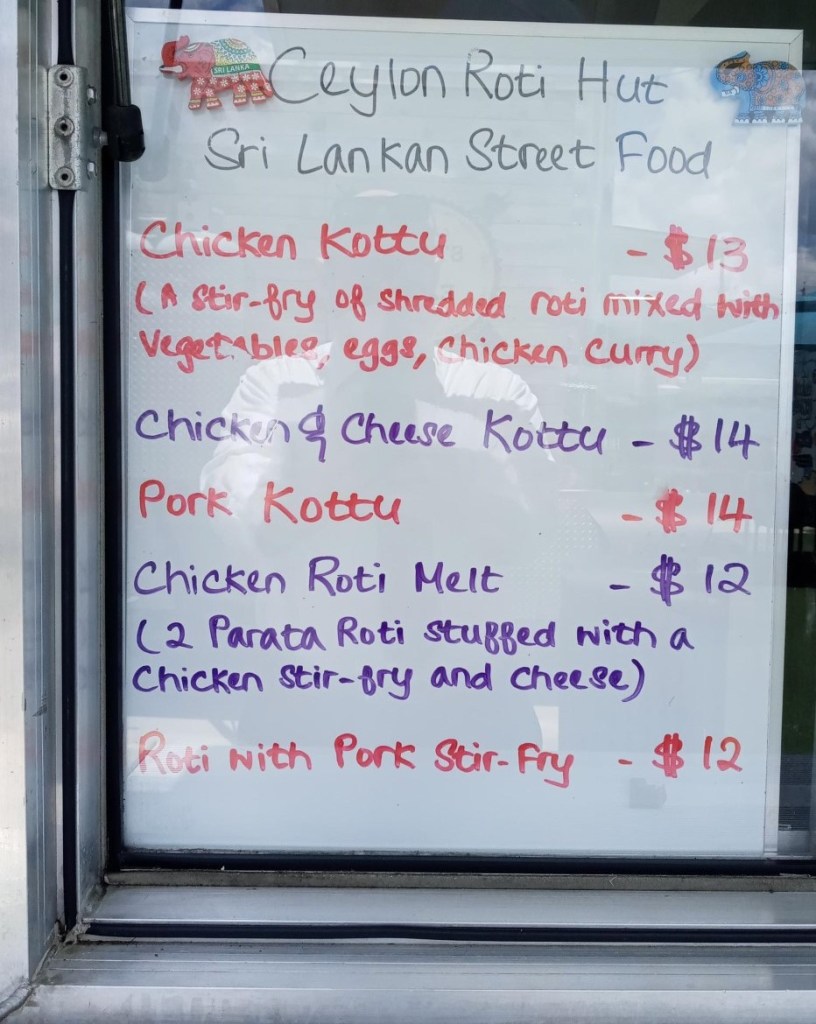 SRI LANKA
Ceylon Roti Hut
Sri Lankan Street Food
Chicken Kottu - $13
(A Stir-fry of shredded roti mixed with
Vegetables, eggs, chicken curry)
Chicken & Cheese Kottu - $14
Pork Kottu - $14
Chicken Roti Melt - $12
(2 Parata Roti stuffed with a
Chicken Stir-fry and cheese)
Roti with Pork Stir-Fry - $12